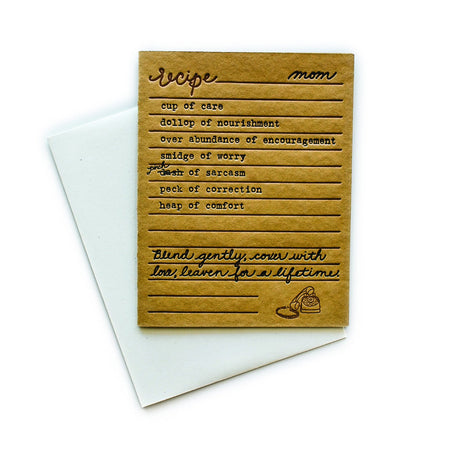 recipe mom
cup of care
dollop of nourishment
over abundance of encouragement
smidge of worry
peck dash of sarcasm
peck of correction
heap of comfort
Blend gently, cover with
love, leaven for a lifetime.